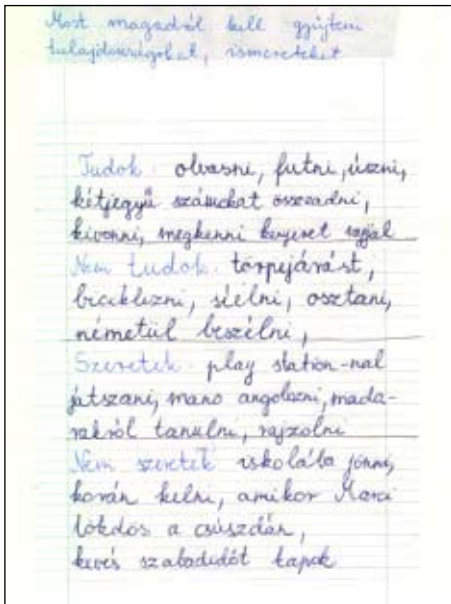 Most magadról kell gyűjteni
tulajdonságokat, ismereteket
Tudok: olvasni, futni, úszni,
kétjegyű számokat összeadni,
kivonni, megkenni kenyeret vajjal
Nem tudok: törpejárást,
biciklizni, síelni, osztani,
németül beszélni,
Szeretek: play station-nal
játszani, mano angolozni, mada-
rakról tanulni, rajzolni
Nem szeretek iskolába jönni,
korán kelni, amikor Marci
lökdös a csúszdán,
kevés szabadidőt kapok